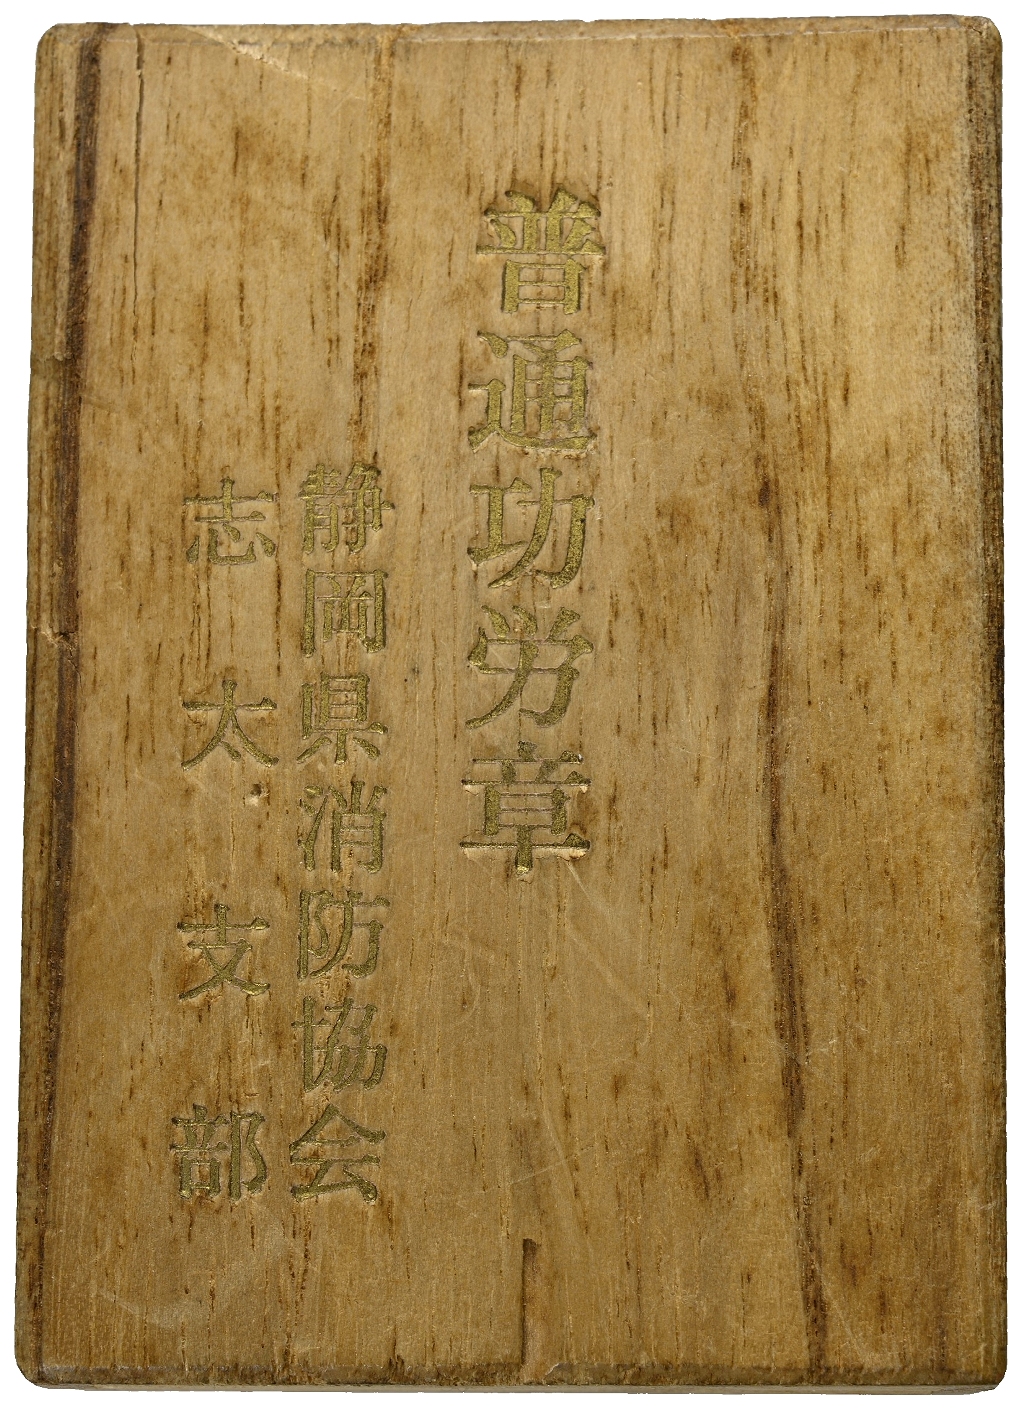 普通功労章
静岡県消防協会
志太支部